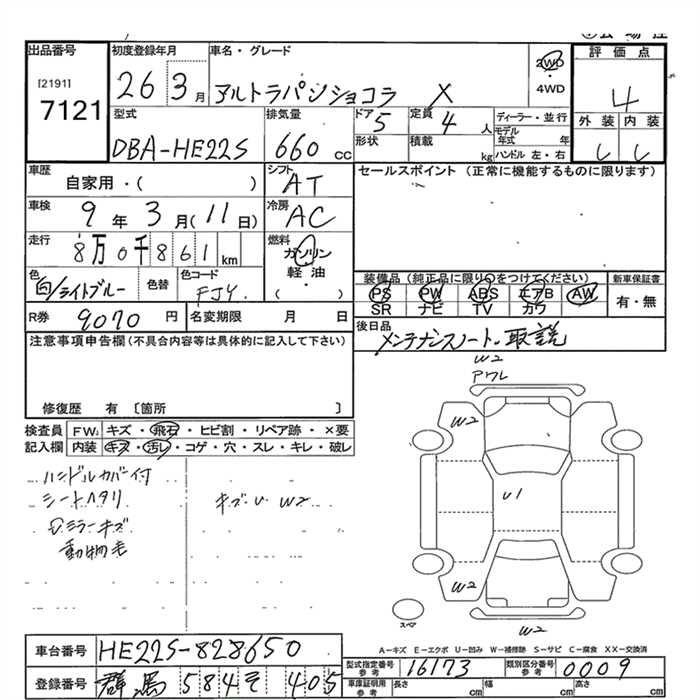 出品番号
[2191]
7121
初度登録年月
26 3月
車名・グレード
アルトラパンショコラ X
2WD
・
4WD
評価点
4
外装 内装
型式
DBA-HE22S
排気量
660 cc
ドア
5
定員
4 人
形状
積載 kg
ディーラー・並行
モデル年式 年
ハンドル 左・右
車歴
自家用・( )
車検
9年3月(11日)
走行
8万0千861km
色
白/ライトブルー
色替
色コード
FJY
シフト
AT
冷房
AC
燃料
ガソリン
軽油
・( )
セールスポイント (正常に機能するものに限ります)
装備品(純正品に限り○をつけてください)
PS PW ABS エアB AW
SR ナビ TV カワ
新車保証書
有・無
R券 9070円
名変期限 月 日
後日品
メンテナンスノート・取説
注意事項申告欄(不具合内容等は具体的に記入して下さい)
修復歴 有 〔箇所 〕
検査員記入欄
FW: キズ・飛石・ヒビ割・リペア跡・×要
内装 キズ・汚レ・コゲ・穴・スレ・キレ・破レ
ハンドルカバー付
シートヘタリ
Dミラーキズ
動物毛
キズU W2
W2
アワレ
W2
U1
W2
W2
スペア
A-キズ E-エクボ U-凹み W-補修跡 S-サビ C-腐食 XX-交換済
車台番号 HE22S-828650
登録番号 群馬 584そ 405
型式指定番号参考 16173
類別区分番号参考 0009
車庫証明用参考 長さ cm 幅 cm 高さ cm